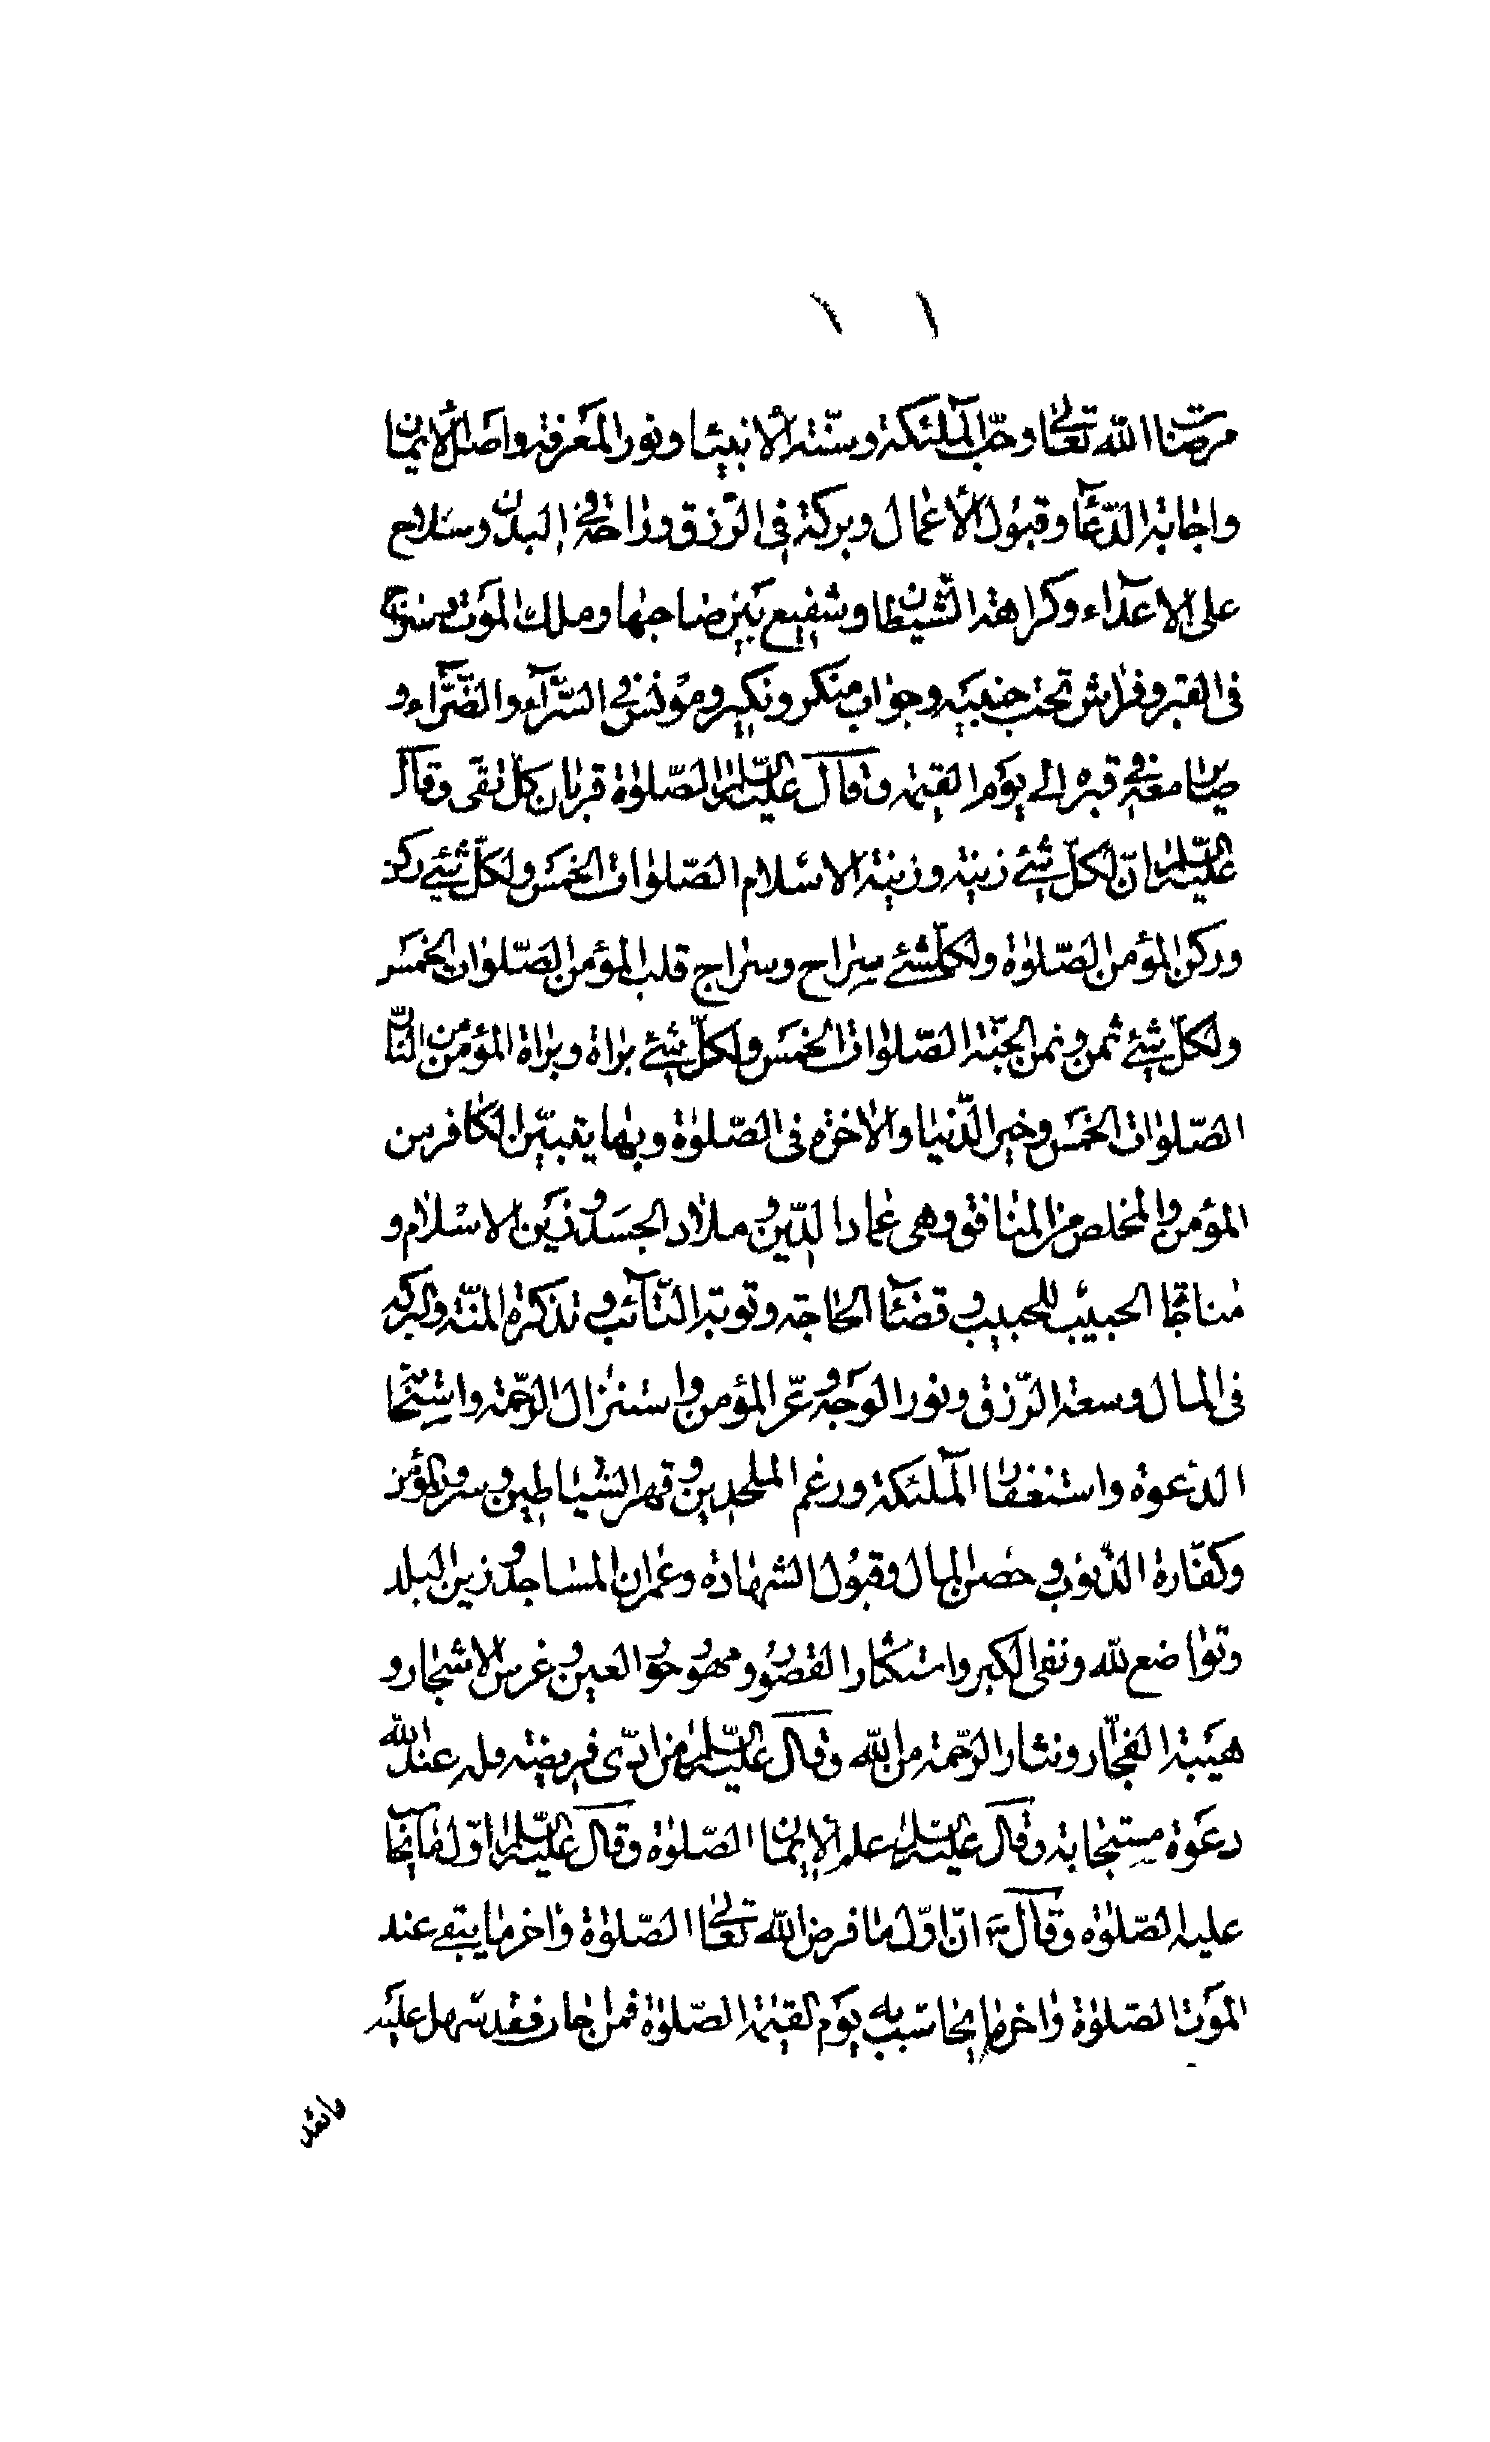 ١ ١
مرضات الله تعالى وحبّ الملئكة وسنّة الأنبياء ونور المعرفة واصل الأيمان
واجابة الدّعاء وقبول الأعمال وبركة فى الرّزق وراحة فى البدن وسلاح
على الاعداء وكراهة الشّيطان وشفيع بين صاحبها وملك الموت وسراج
فى القبر وفراش تحت جنبيه وجواب منكر ونكير ومونس فى السّرّآء والضّرّاء و
صار معه فى قبره الى يوم القيمة وقال عليه السّلام الصّلوة قربان كلّ تقى وقال
عليه السّلام انّ لكلّ شيئ زينة وزينة الاسلام الصّلوات الخمس ولكلّ شيئ ركن
وركن المؤمن الصّلوة ولكلّشئ سراج وسراج قلب المؤمن الصّلوات الخمس
ولكلّ شيئ ثمن وثمن الجنّة الصّلوات الخمس ولكلّ شيئ براة وبراة المؤمن من النّار
الصّلوات الخمس وخير الدّنيا والاخرة فى الصّلوة وبها يتبيّن الكافر من
المؤمن والمخلص من المنافق وهى عماد الدّين وملاذ الجسد وزين الاسلام و
مناجات الحبيب للحبيب وقضاء الحاجة وتوبة التّآئب وتذكرة المنّة والبركة
فى المال وسعة الرّزق ونور الوجه وعزّ المؤمن واستنزال الرّحمة واستجابة
الدّعوة واستغفار الملئكة ورغم الملحدين وقهر الشّياطين وسرور المؤمن
وكفّارة الذّنوب وحصن المال وقبول الشهادة وعمران المساجد وزين البلد
وتواضع لله ونفى الكبر واستكثار القصور ومهور حور العين وغرس الاشجار و
هيبة الفجّار ونثار الرّحمة من الله وقال عليه السّلام من ادّى فريضة فله عند الله
دعوة مستجابة وقال عليه السّلام علم الايمان الصّلوة وقال عليه السّلام اوّل ما يحاسب
عليه الصّلوة وقال انّ اوّل ما فرض الله تعالى الصّلوة واخر ما يبقى عند
الموت الصّلوة واخر ما يحاسب به يوم القيمة الصّلوة فمن اجاب فقد سهل عليه
ما بعد